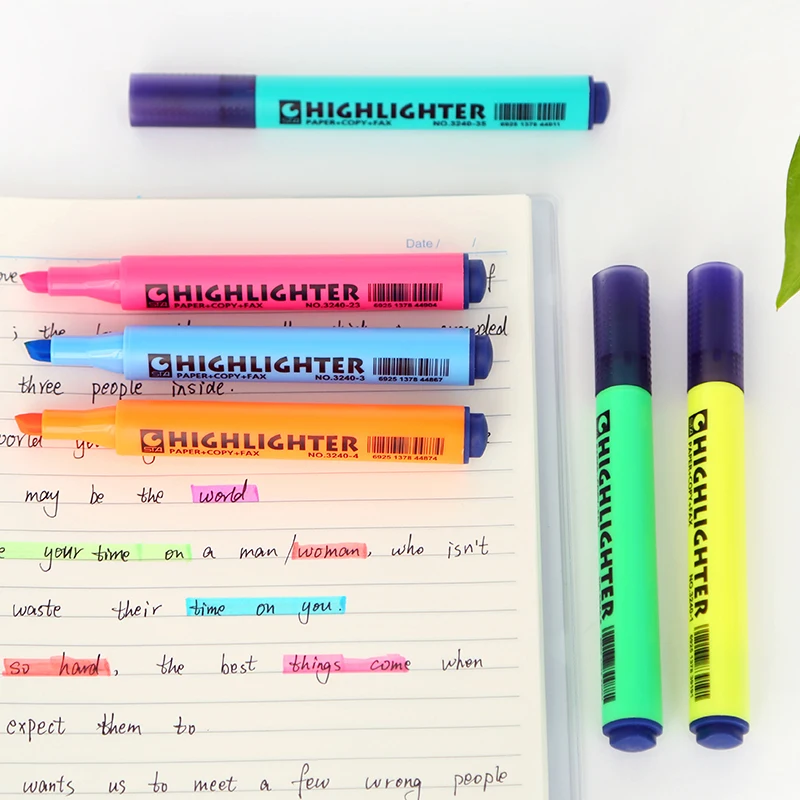 STA HIGHLIGHTER
PAPER+COPY+FAX NO.3240-35 6925 1378 44911
Date / /
STA HIGHLIGHTER
PAPER+COPY+FAX NO.3240-23 6925 1378 44904
; the
STA HIGHLIGHTER
PAPER+COPY+FAX NO.3240-3 6925 1378 44867
three people inside.
STA HIGHLIGHTER
PAPER+COPY+FAX NO.3240-4 6925 1378 44874
may be the world
your time on a man/woman, who isn't
waste their time on you.
so hard, the best things come when
expect them to
wants us to meet a few wrong people
HIGHLIGHTER
HIGHLIGHTER
PAPER+COPY+FAX NO.3240-1